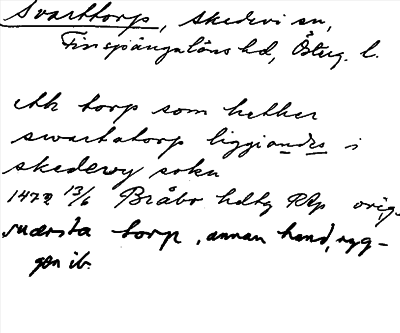 Svarttorp, Skedevi sn,
Finspångaläns hd, Östug. l.
ett torp som hether
swartatorp liggiandes i
skedewy sokn
1472 13/6 Bråbo hdtg RAp orig.
suærsta torp, annan hand, ryg-
gen ib.